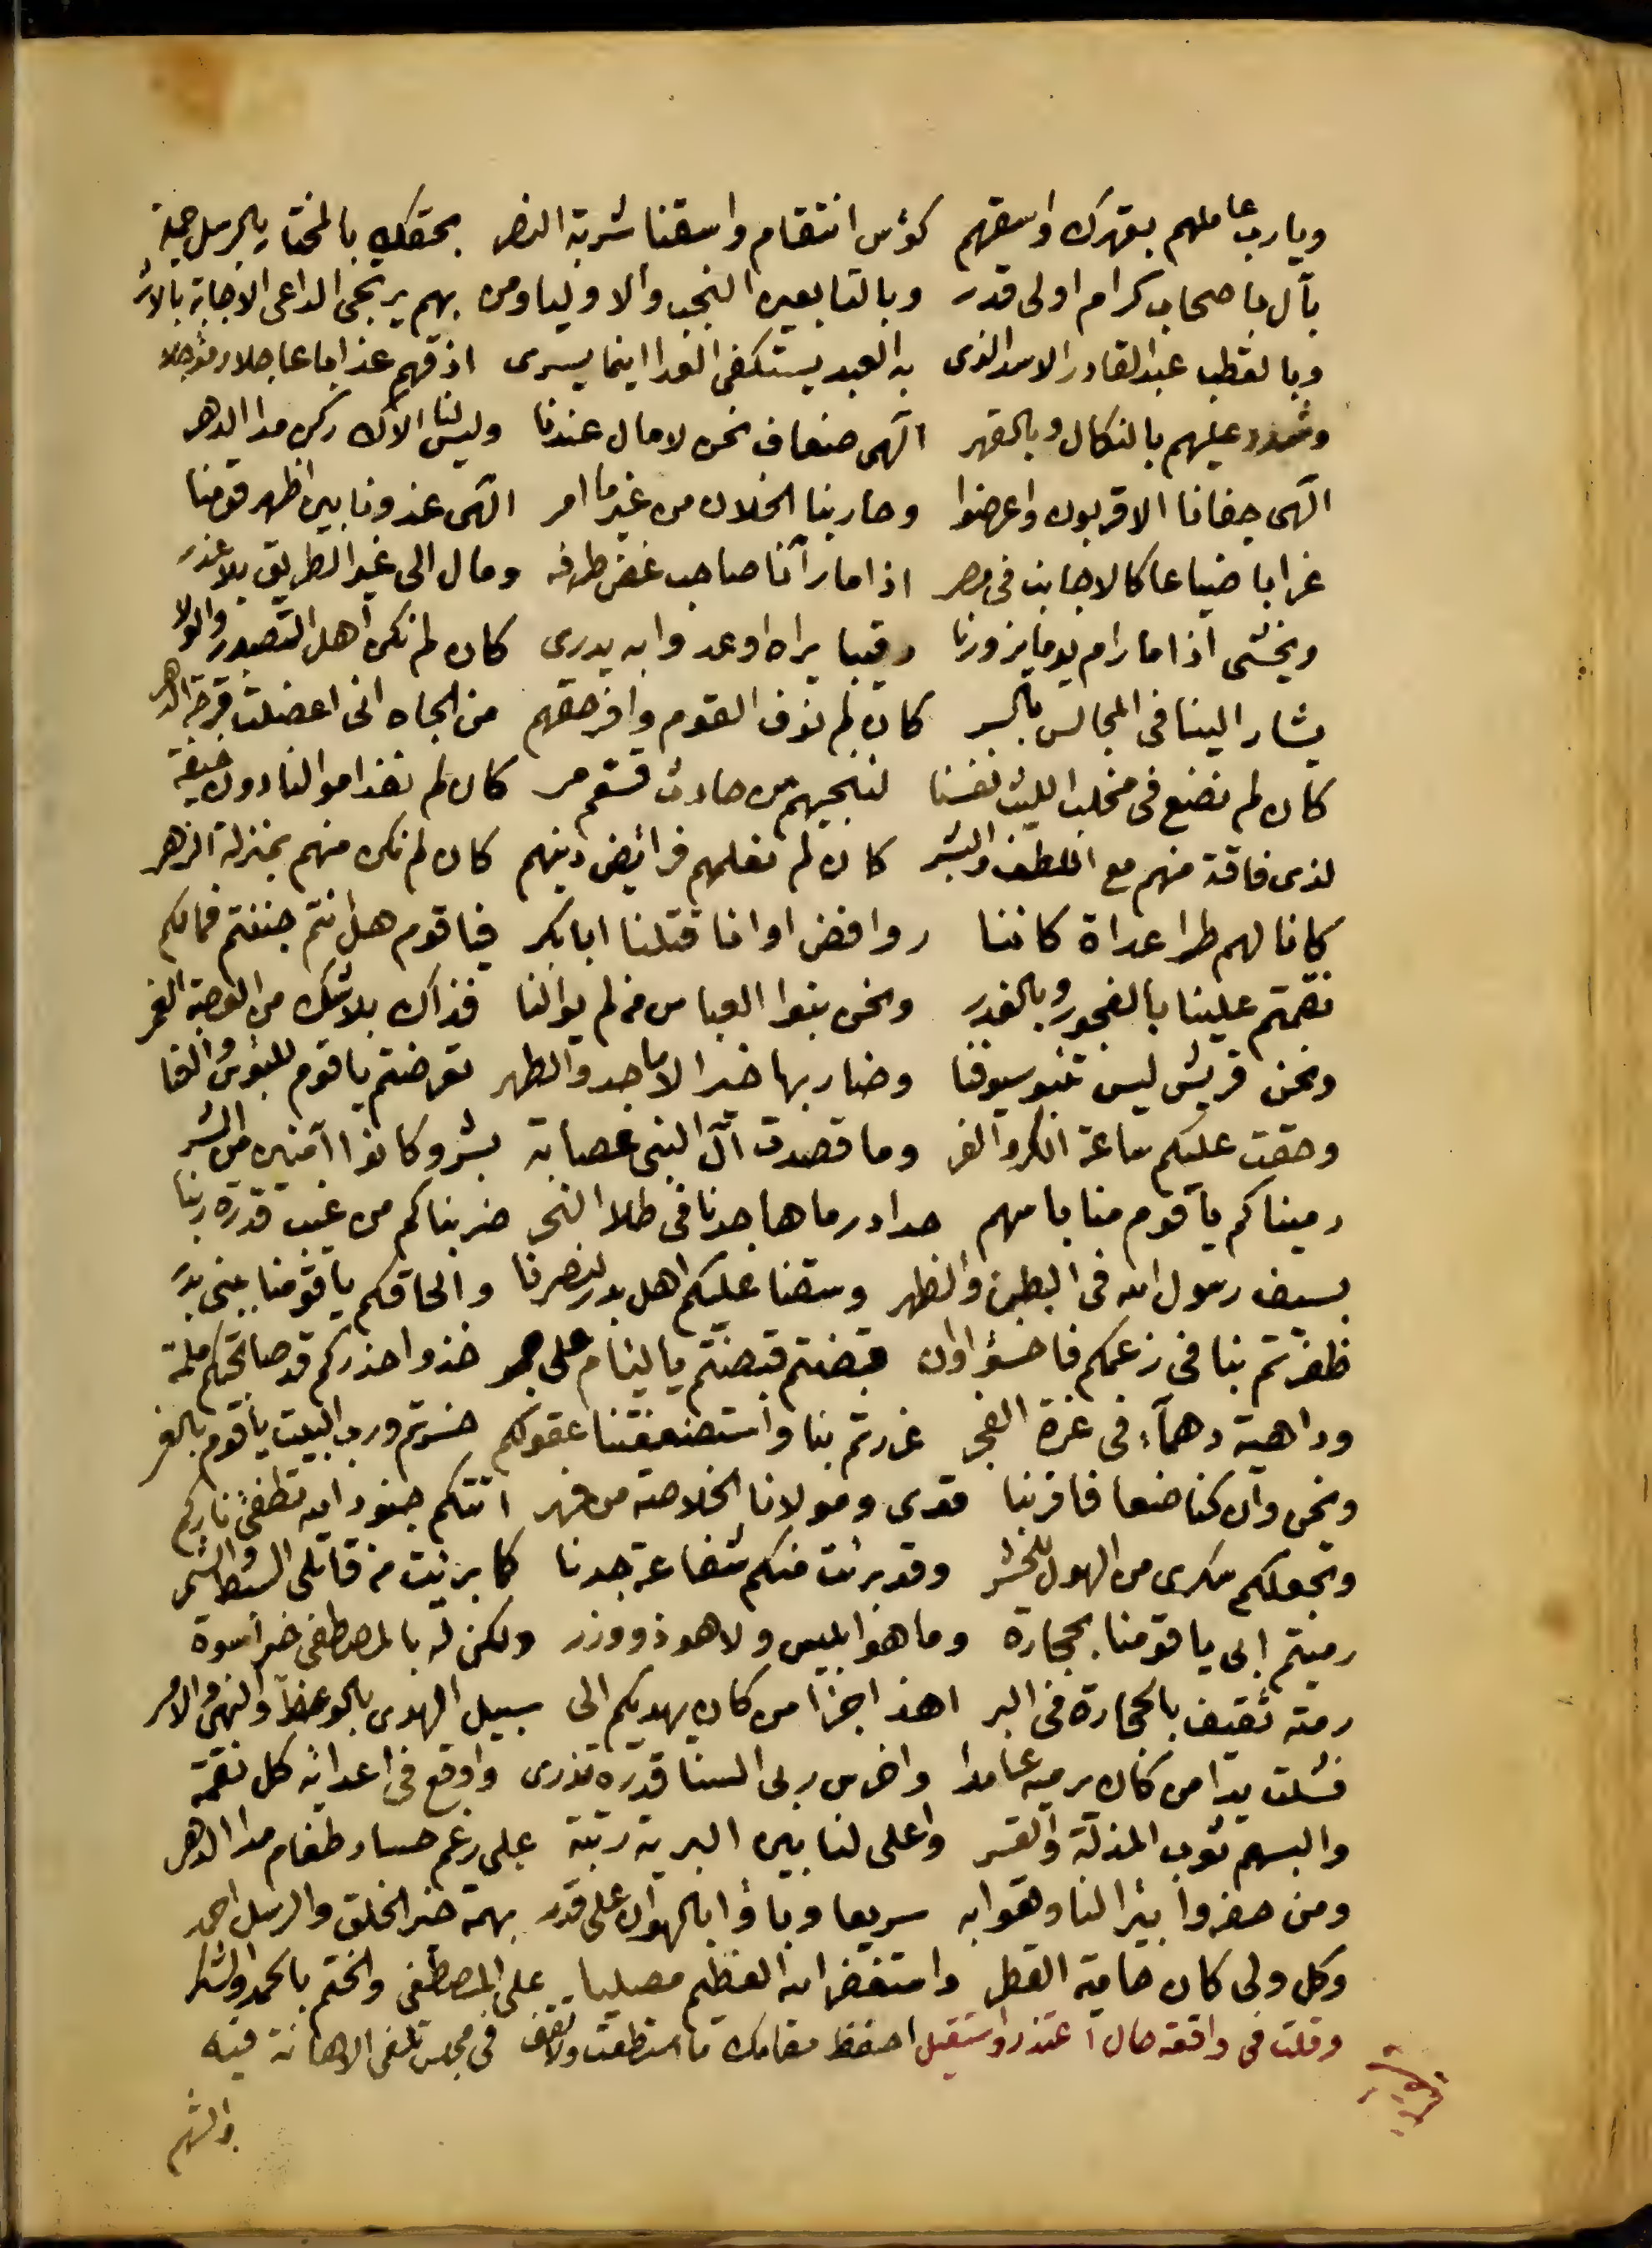 ويارب عاملهم بقهرك واسقهم كؤس انتقام واسقنا شربة النصر بحقك بالمختار بالرسل جملة
بآل باصحاب كرام اولى قدر وبالتابعين النجب والاوليا ومن بهم يرتجى الداعى الاجابة بالاثر
وبالقطب عبدالقادر الاسد الذى به العبد يستكفى العدا اينما يسرى اذقهم عذابا عاجلا ومؤجلا
وشدد عليهم بالنكال وبالقهر الهى ضعاف نحن لا مال عندنا وليس لنا الاك ركن مدا الدهر
الهى جفانا الاقربون واعرضوا وحاربنا الخلان من غير ما امر الهى غدونا بين اظهر قومنا
غرابا ضياعا كالاجانب فى مصر اذا ما رآنا صاحب غض طرفه ومال الى غير الطريق بلا عذر
ويخشى اذا ما رام يوما يزورنا رقيبا يراه او عدوا به يدرى كان لم نكن اهل التصدر والولا
يشار الينا فى المجالس بالبر كان لم نوف القوم وافر حقهم من الجاه انى اعضلت قرحة الدهر
كان لم نضع فى مخلب الليث نفسنا لننجيهم من حادث قسقم مر كان لم نغذ اموالنا دون خيفة
لذى فاقة منهم مع اللطف والبشر كان لم نعلمهم فرائض دينهم كان لم نكن منهم بمنزلة الزهر
كانا لهم طرا عداة كاننا روافض او انا قتلنا ابابكر فيا قوم هل انتم جننتم فمالكم
نقمتم علينا بالفجور وبالغدر ونحن بنوا العباس من لم يوالنا فذاك بلا شك من العصبة الغمر
ونحن قريش ليس تنبو سيوفنا وضاربها خير الاماجد والطهر تعرضتم يا قوم للبؤس والفنا
وحقت عليكم ساعة الكر والفر وما قصدت آل النبى عصابة بشر وكانوا آمنين من الشر
رميناكم يا قوم منا باسهم حداد رماها جدنا فى طلا النحر ضربناكم من غيب قدرة ربنا
بسيف رسول الله فى البطن والظهر وسقنا عليكم اهل بدر لنصرنا والحاقكم يا قومنا ببنى بدر
ظفرتم بنا فى زعمكم فاخسؤا اولن قبضتم قبضتم يا ليام على جمر خذوا حذركم قد صابحتكم ملمة
وداهية دهماء فى غرة الفجر غدرتم بنا واستضعفتنا عقولكم خسرتم ورب البيت يا قوم بالغدر
ونحن وان كنا ضعافا فربنا قوى ومولانا الخلاصة من فهر اتتكم جنود الله تطفئ ناركم
وتجعلكم سكرى من الهول للحشر وقد برئت منكم شفاعة جدنا كما برئت من قاتلى السبط والشمر
رميتم ابى يا قومنا بحجارة وما هو ابليس ولا هو ذو وزر ولكن له بالمصطفى خير اسوة
رمته ثقيف بالحجارة فى البر اهذا جزا من كان يهديكم الى سبيل الهدى بالوعظ والنهى والامر
فشلت يدا من كان يرميه عامدا واخرس ربى السنا قدره تذرى واوقع فى اعدائه كل نقمة
والبسهم ثوب المذلة والقسر واعلى لنا بين البرية رتبة على رغم حساد طغام مدا الدهر
ومن حفروا بئرا لنا وقعوا به سريعا وباؤا بالهوان على قدر بهمة خير الخلق والرسل احمد
وكل ولى كان حامية القطر واستغفر الله العظيم مصليا على المصطفى والختم بالحمد والشكر
وقلت فى واقعة حال اعتذر واستقيل احفظ مقامك ما استطعت ولا تقف فى مجلس تلفى الاهانة فيه
والشهم